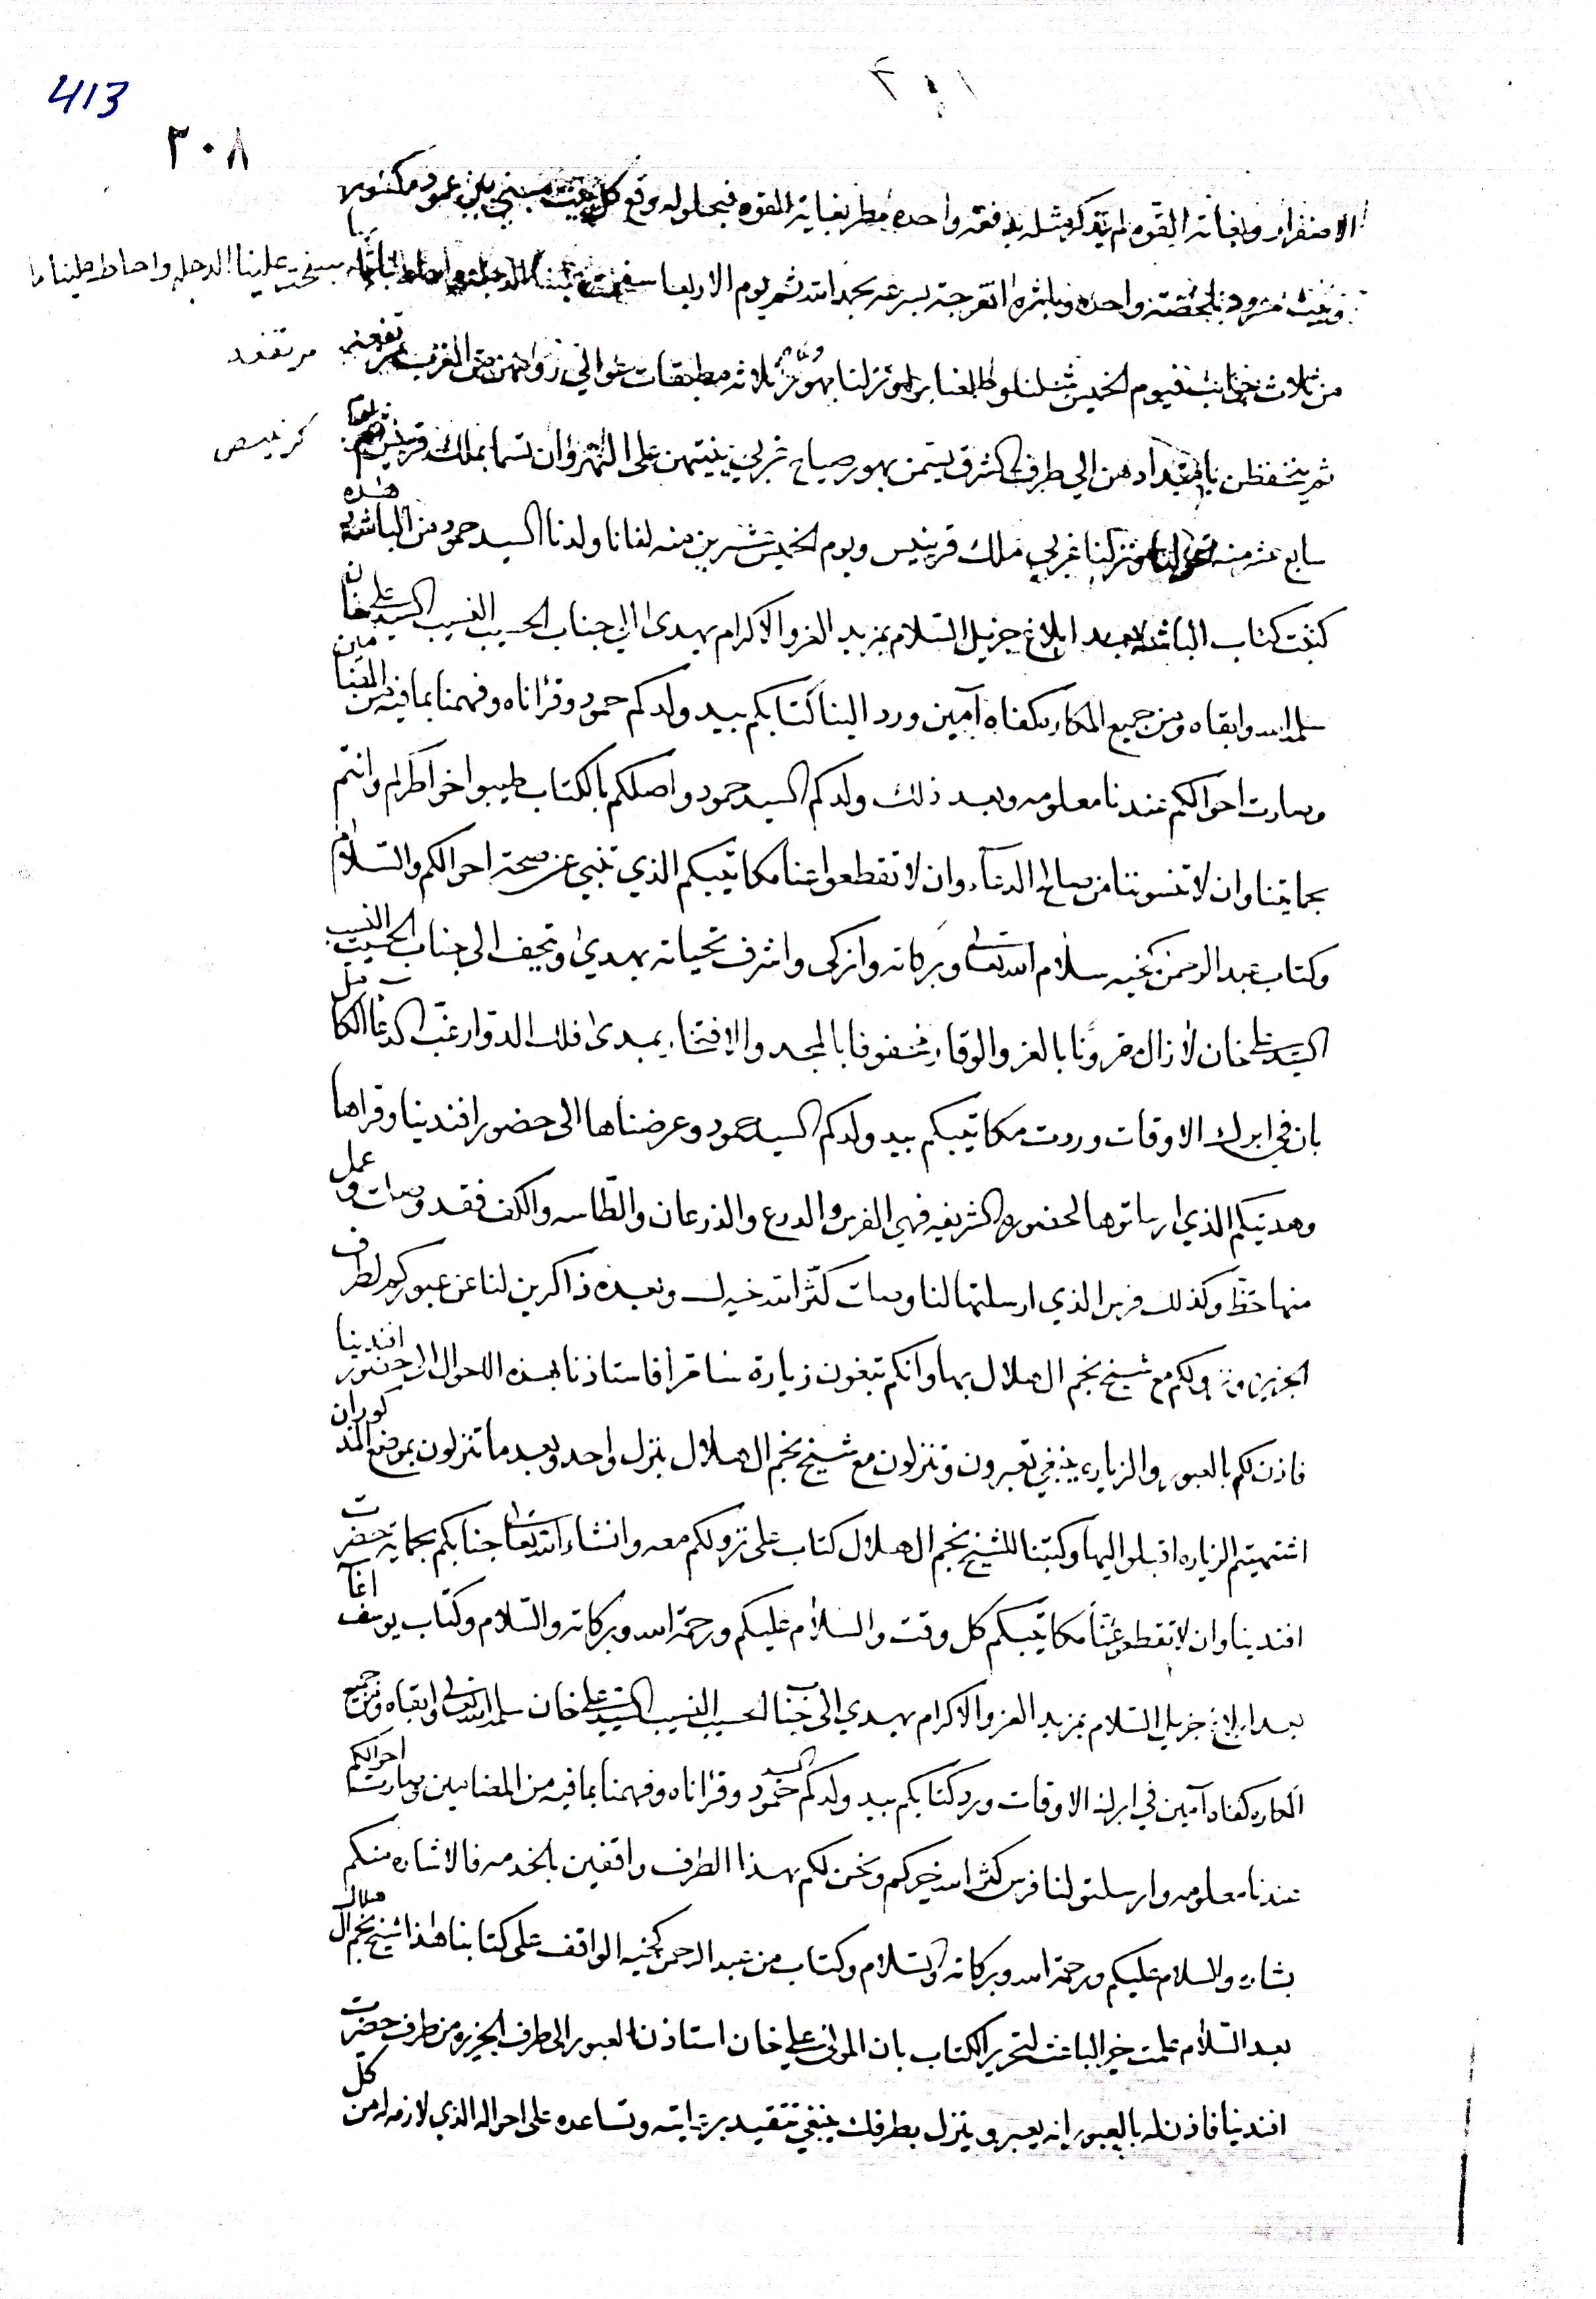 413
٣٠٨
الاصفرار وبغاته القوه لم يتذكر مثله بدفعة واحدة مطر بغاية القوه فبحلوله وقع كل بيت مبني بين عمود مكسور
وبيت مشرود بلحظة واحده وبلثره انفرجت بسرعه بحمد الله ثم يوم الاربعا سفحت علينا الدجله واحاط علينا ما
سفحت علينا الدجله واحاط علينا ما
من ثلاث جوانب فيوم الخميس شلنا وطلعنا برا ونزلنا بهور ثلاثه مطبقات عوالي من الغرب مرتفعه
مرتفعه
ثم ينخفظن بامتدادهن الي طرف الشرق يسمن بهور صياح غربي ينتهن على النهروان تسما بملك قرينيس يوم
كرنيس
سابع عشر منه حولنا ونزلنا غربي ملك قرينيس ويوم الخميس عشرين منه لفانا ولدنا السيد حمود من الباشه هذه
كتبت كتاب الباشه بعد ابلاغ جزيل السلام بمزيد العز والاكرام يهدى الي جناب الحسيب النسيب السيد علي خان
سلمه الله وابقاه ومن جميع المكاره كفاه آمين ورد الينا كتابكم بيد ولدكم حمود وقرأناه وفهمنا بما فيه من المضامين
وصارت احوالكم عندنا معلومه وبعد ذلك ولدكم السيد حمود واصلكم بالكتاب طيبوا خواطركم وانتم
بحمايتنا وان لا تنسوننا من صالح الدعآء وان لا تقطعوا عنا مكاتيبكم الذي تنبي عن صحة احوالكم والسلام
وكتاب عبد الرحمن كخيه سلام الله تعالى وبركاته وازكى واشرف تحياته يهدي وتحف الى جناب الحسيب النسيب
السيد علي خان لا زال مقرونا بالعز والوقار محفوفا بالمجد والافتخار بمدى فلك الدوار غب الدعا الكامل
بان في ابرك الاوقات وردت مكاتيبكم بيد ولدكم السيد حمود وعرضناها الى حضور افندينا وقراها
وهديتكم الذي ارسلتوها لحضوره الشريفه فهي الفرس والدرع والذرعان والطاسه والكف فقد وصلت وعمل
منها حظ وكذلك فرس الذي ارسلتها لنا وصلت كثر الله خيرك وبعده ذاكرين لنا عن عبوركم لطرف
الجزيره ونزولكم مع شيخ نجم ال هلال بها وانكم تبغون زيارة سامرا فاستاذنا بهذه الاحوال الى حضور افندينا
فاذن لكم بالعبور والزياره ينبغي تعبرون وتنزلون مع شيخ نجم ال هلال بنزل واحد وبعد ما تنزلون بموضع المذكوران
اشتهيتم الزياره اقبلوا اليها وكتبنا للشيخ نجم ال هلال كتاب على نزولكم معه وانشاء الله تعالى جنابكم بحماية حضرت
افندينا وان لا تقطعو عنا مكاتيبكم كل وقت والسلام عليكم ورحمة الله وبركاته والسلام وكتاب يوسف اغآ
بعد ابلاغ جزيل السلام بمزيد العز والاكرام يهدي الى جناب الحسيب النسيب السيد علي خان سلمه الله تعالى وابقاه ومن جميع
المكاره كفاه آمين في ابرك الاوقات ورد كتابكم بيد ولدكم السيد حمود وقرأناه وفهمنا بما فيه من المضامين وصارت احوالكم
عندنا معلومه وارسلتو لنا فرس كثر الله خيركم ونحن لكم بهذا الطرف واقفين بالخدمه فالاشاره منكم
بشاره والسلام عليكم ورحمة الله وبركاته والسلام وكتاب من عبد الرحمن كخيه الواقف على كتابنا هذا شيخ نجم ال هلال
بعد السلام علمت خير الباعث لتحرير الكتاب بان المولى علي خان استاذن العبور الى طرف الجزيره من طرف حضرت
افندينا فاذن له بالعبور انه يعبر وينزل بطرفك ينبغي تتقيد برايته وتساعده على احواله الذي لازمه له من كل